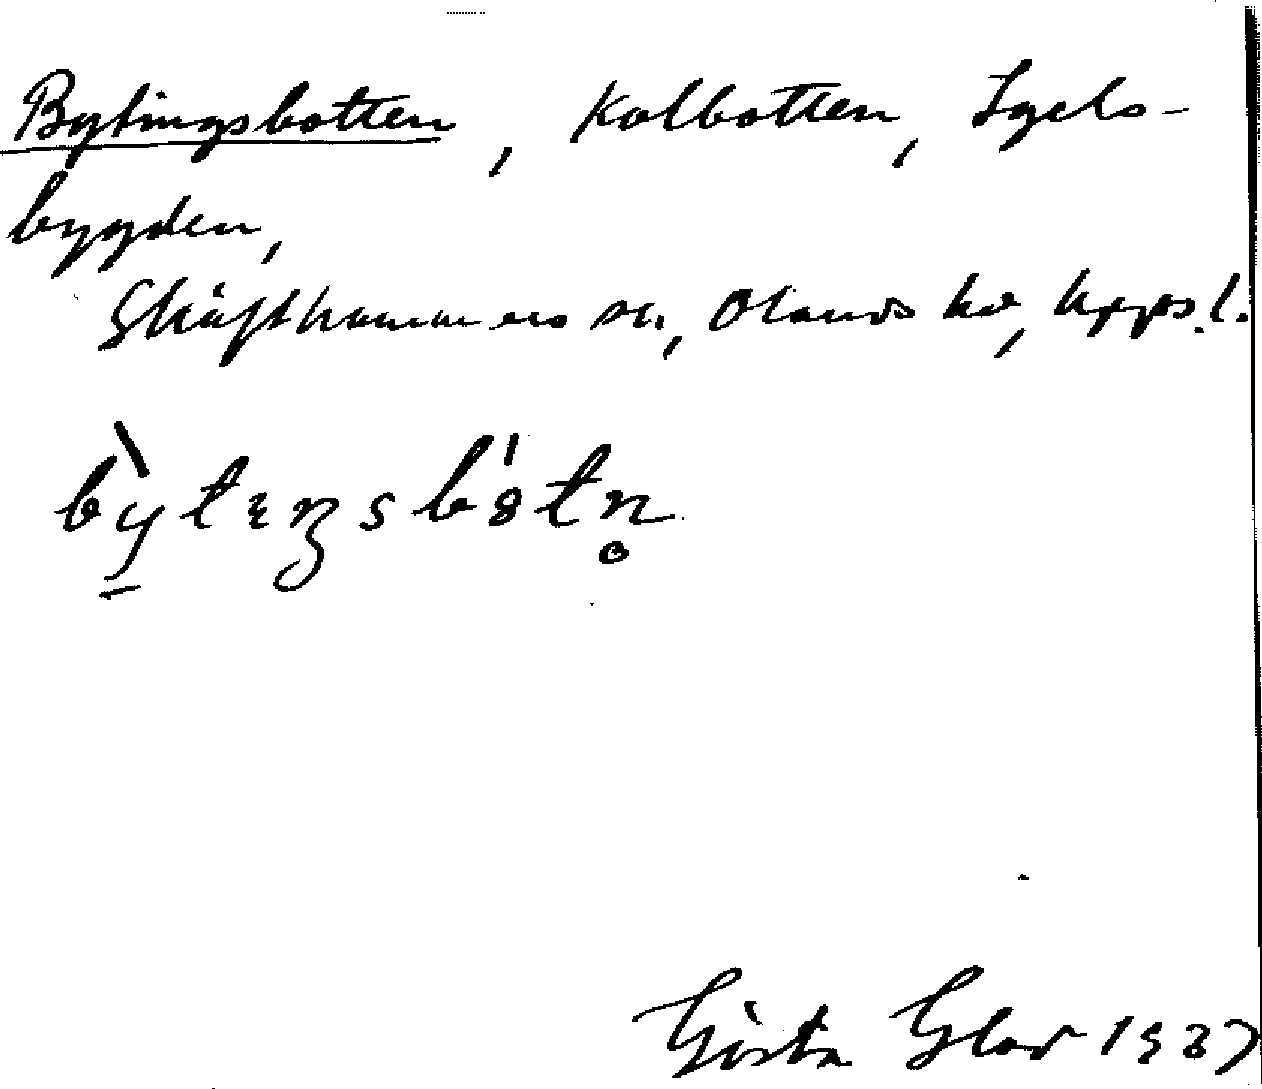 Bytingsbotten, Kolbotten, Igels-
bygden,
Skäfthammars sn, Olands hd, Upps. l.
bỳtɛŋsbótn̥
Gösta Glad 1937